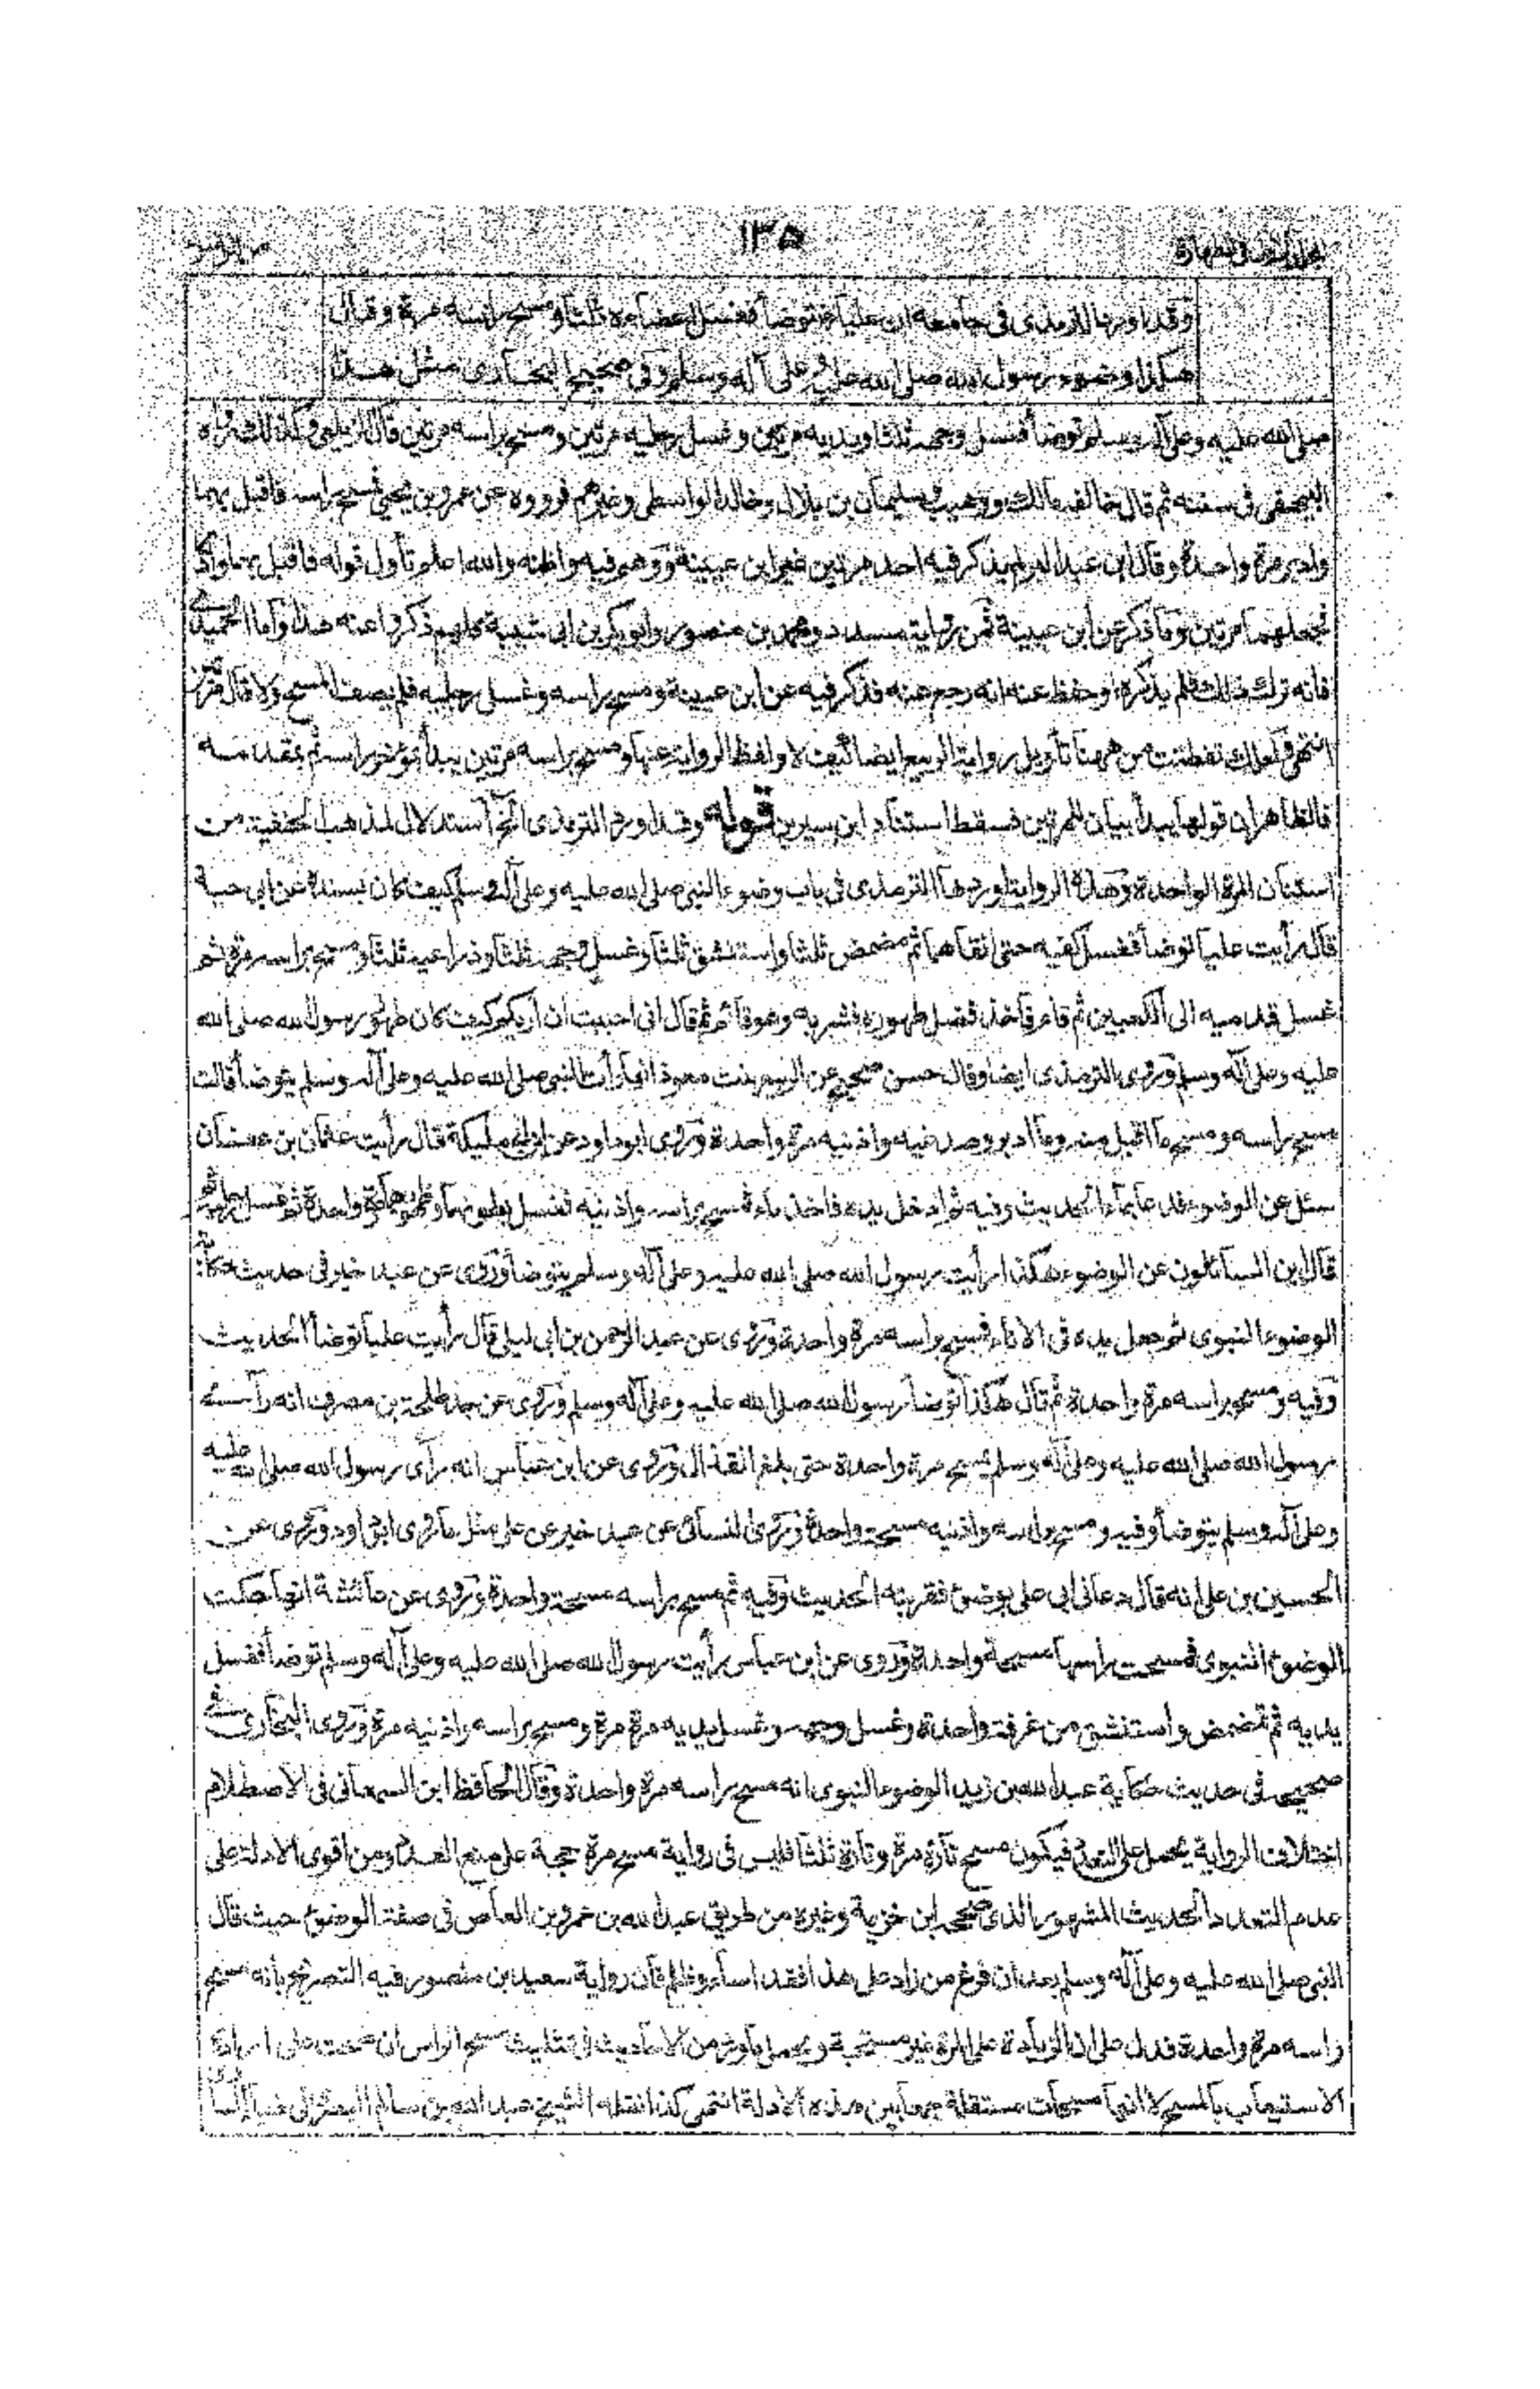 ١٣٥
في الطهارة
وقد اورد الترمذي في جامعه ان عليا توضأ فغسل اعضاءه ثلثا ومسح براسه مرة وقال
هكذا وضوء رسول الله صلى الله عليه وعلى آله وسلم وفي صحيح البخاري مثل هذا
صلى الله عليه وعلى آله وسلم توضأ فغسل وجهه ثلثا ويديه مرتين وغسل رجليه مرتين ومسح براسه مرتين قال الزيلعي وكذلك رواه
البيهقي في سننه ثم قال خالفه مالك ووهيب وسليمان بن بلال وخالد الواسطي وغيرهم فرووه عن عمرو بن يحيى فمسح براسه فاقبل بهما
وادبر مرة واحدة وقال ابن عبد البر لم يذكر فيه احد مرتين غير ابن عيينة ووهم فيه واظنه والله اعلم تأول قوله فاقبل بهما وادبر
فجعلهما مرتين وما ذكر عن ابن عيينة فمن رواية مسدد ومحمد بن منصور وابو بكر بن ابي شيبة كلهم ذكر واعنه هذا وأما الحميدي
فانه ترك ذلك فلم يذكره او حفظ عنه انه رجع عنه فذكر فيه عن ابن عيينة ومسح براسه وغسل رجليه فلم يصف المسح ولا قال مرتين
انتهى ولعلك تفطنت من ههنا تأويل رواية الربيع ايضا كيف لا ولفظ الرواية عنها ومسح براسه مرتين يبدأ بمؤخر راسه ثم بمقدمه
فالظاهر ان قولها يبدأ بيان للمرتين فسقط استناد ابن سيرين قوله وقد اورد الترمذي الخ استدلال لمذهب الحنفية من
استنان المرة الواحدة وهذه الرواية اوردها الترمذي في باب وضوء النبي صلى الله عليه وعلى آله وسلم كيف كان بسنده عن ابي حية
قال رأيت عليا توضأ فغسل كفيه حتى انقاهما ثم مضمض ثلثا واستنشق ثلثا وغسل وجهه ثلثا وذراعيه ثلثا ومسح براسه مرة ثم
غسل قدميه الى الكعبين ثم قام فأخذ فضل طهوره فشربه وهو قائم ثم قال اني احببت ان اريكم كيف كان طهور رسول الله صلى الله
عليه وعلى آله وسلم وروى الترمذي ايضا وقال حسن صحيح عن الربيع بنت معوذ انها رأت النبي صلى الله عليه وعلى آله وسلم يتوضأ قالت
مسح براسه ومسح ما اقبل منه وما ادبر وصدغيه واذنيه مرة واحدة وروى ابو داود عن ابن ابي مليكة قال رأيت عثمان بن عفان
سئل عن الوضوء فدعا بماء الحديث وفيه ثم ادخل يده فاخذ ماء فمسح براسه واذنيه فغسل بطونهما وظهورهما مرة واحدة ثم غسل رجليه ثم
قال اين السائلون عن الوضوء هكذا رأيت رسول الله صلى الله عليه وعلى آله وسلم يتوضأ وروى عن عبد خير في حديث حكاية
الوضوء النبوي ثم جعل يده في الاناء فمسح براسه مرة واحدة وروى عن عبد الرحمن بن ابي ليلى قال رأيت عليا توضأ الحديث
وفيه ومسح براسه مرة واحدة ثم قال هكذا توضأ رسول الله صلى الله عليه وعلى آله وسلم وروى عن جد طلحة بن مصرف انه رأى
رسول الله صلى الله عليه وعلى آله وسلم يمسح مرة واحدة حتى بلغ القذال وروى عن ابن عباس انه رأى رسول الله صلى الله عليه
وعلى آله وسلم يتوضأ وفيه ومسح براسه واذنيه مسحة واحدة وروى النسائي عن عبد خير عن علي مثل ما روى ابو داود وروى عن
الحسين بن علي انه قال دعاني ابي علي بوضوء فقربته الحديث وفيه ثم مسح براسه مسحة واحدة وروى عن عائشة انها حكت
الوضوء النبوي فمسحت راسها مسحة واحدة وروى عن ابن عباس رأيت رسول الله صلى الله عليه وعلى آله وسلم توضأ فغسل
يديه ثم تمضمض واستنشق من غرفة واحدة وغسل وجهه وغسل يديه مرة مرة ومسح براسه واذنيه مرة وروى البخاري في
صحيحه في حديث حكاية عبد الله بن زيد الوضوء النبوي انه مسح براسه مرة واحدة وقال الحافظ ابن السمعاني في الاصطلام
اختلاف الرواية يحمل على التعدد فيكون مسح تارة مرة وتارة ثلثا فليس في رواية مسح مرة حجة على منع التعدد ومن اقوى الادلة على
عدم التعدد الحديث المشهور الذي صححه ابن خزيمة وغيره من طريق عبد الله بن عمرو بن العاص في صفة الوضوء حيث قال
النبي صلى الله عليه وعلى آله وسلم بعد ان فرغ من زاد على هذا فقد اساء وظلم فان رواية سعيد بن منصور فيه التصريح بأنه مسح
راسه مرة واحدة فدل على ان الزيادة على المرة غير مستحبة ويحمل ما ورد من الاحاديث في تثليث مسح الراس ان صحت على ارادة
الاستيعاب بالمسح لا انها مسحات مستقلة جمعا بين هذه الادلة انتهى كذا نقله الشيخ عبد الله بن سالم البصري في ضياء